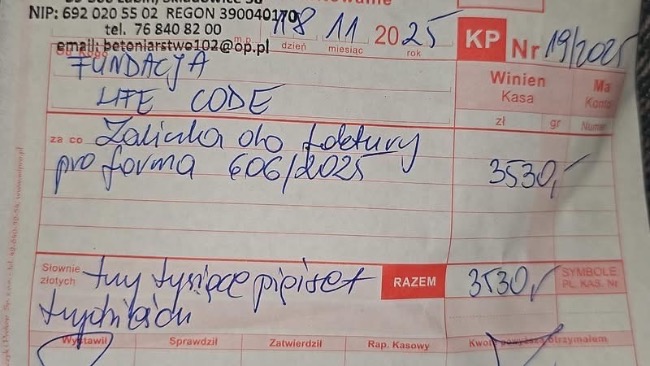 NIP: 692 020 55 02 REGON 390040170
tel. 76 840 82 00
email: betoniarstwo102@op.pl
18 11 2025
dzień miesiąc rok
KP Nr 19/2025
Od kogo
FUNDACJA
LIFE CODE
Winien
Kasa
Ma
zł gr Numer
za co Zaliczka do faktury
pro forma 606/2025
3530,-
Słownie
złotych
trzy tysiące pięćset
trzydzieści
RAZEM
3530,-
SYMBOLE
PL. KAS. Nr
Wystawił Sprawdził Zatwierdził Rap. Kasowy Kwotę powyższą otrzymałem